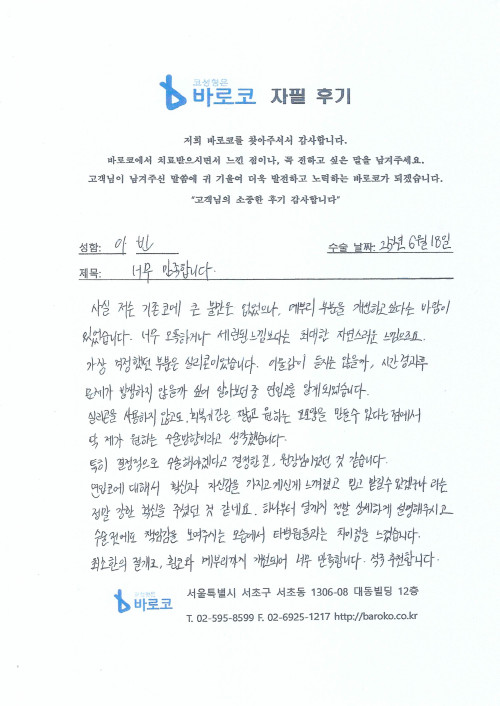 코성형은
바로코 자필 후기
저희 바로코를 찾아주셔서 감사합니다.
바로코에서 치료받으시면서 느낀 점이나, 꼭 전하고 싶은 말을 남겨주세요.
고객님이 남겨주신 말씀에 귀 기울여 더욱 발전하고 노력하는 바로코가 되겠습니다.
"고객님의 소중한 후기 감사합니다"
성함: 이 빈 수술 날짜: 25년 6월 18일
제목: 너무 만족합니다.
사실 저는 기존 코에 큰 불만은 없었으나, 매부리 부분을 개선하고싶다는 바람이
있었습니다. 너무 오똑하거나 세련된 느낌보다는 최대한 자연스러운 느낌으로요.
가장 걱정했던 부분은 실리콘이었습니다. 이물감이 들지는 않을까, 시간 경과후
문제가 발생하지 않을까 싶어 알아보던 중 연입코를 알게되었습니다.
실리콘을 사용하지 않고도, 회복기간은 짧고 원하는 코모양을 만들수 있다는 점에서
딱 제가 원하는 수술방향이라고 생각했습니다.
특히 결정적으로 수술해야겠다고 결정한건, 원장님이었던 것 같습니다.
연입코에 대해서 확신과 자신감을 가지고 계신게 느껴졌고 믿고 받을수 있겠구나 라는
정말 강한 확신을 주셨던 것 같네요. 하나부터 열까지 정말 상세하게 설명해주시고
수술 전에도 책임감을 보여주시는 모습에서 타병원들과는 차이점을 느꼈습니다.
최소한의 절개로, 휜코와 매부리까지 개선되어 너무 만족합니다. 적극 추천합니다.
코성형은
바로코 서울특별시 서초구 서초동 1306-08 대동빌딩 12층
T. 02-595-8599 F. 02-6925-1217 http://baroko.co.kr